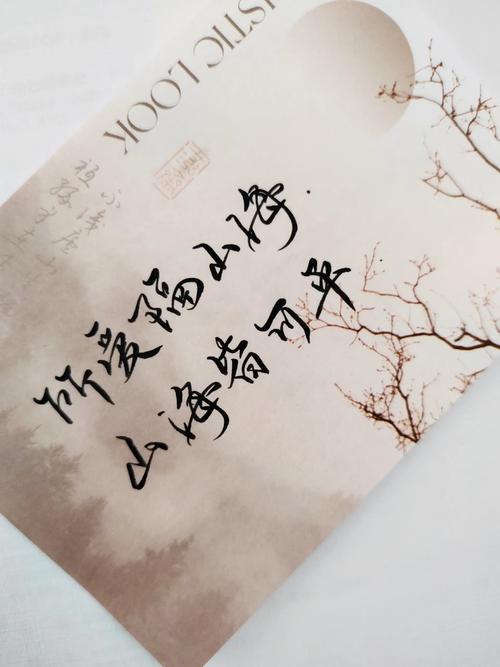 STIC LOOK
所爱隔山海.
山海皆可平